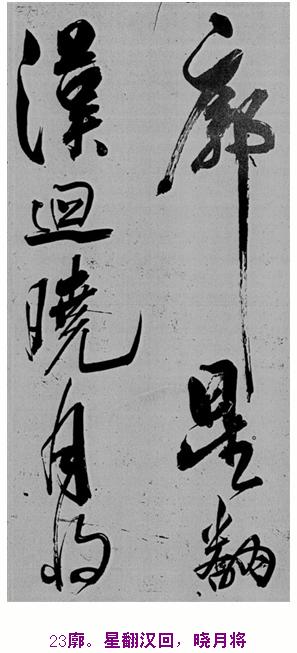 廓星翻
漢迴曉月将
23廓。星翻汉回，晓月将